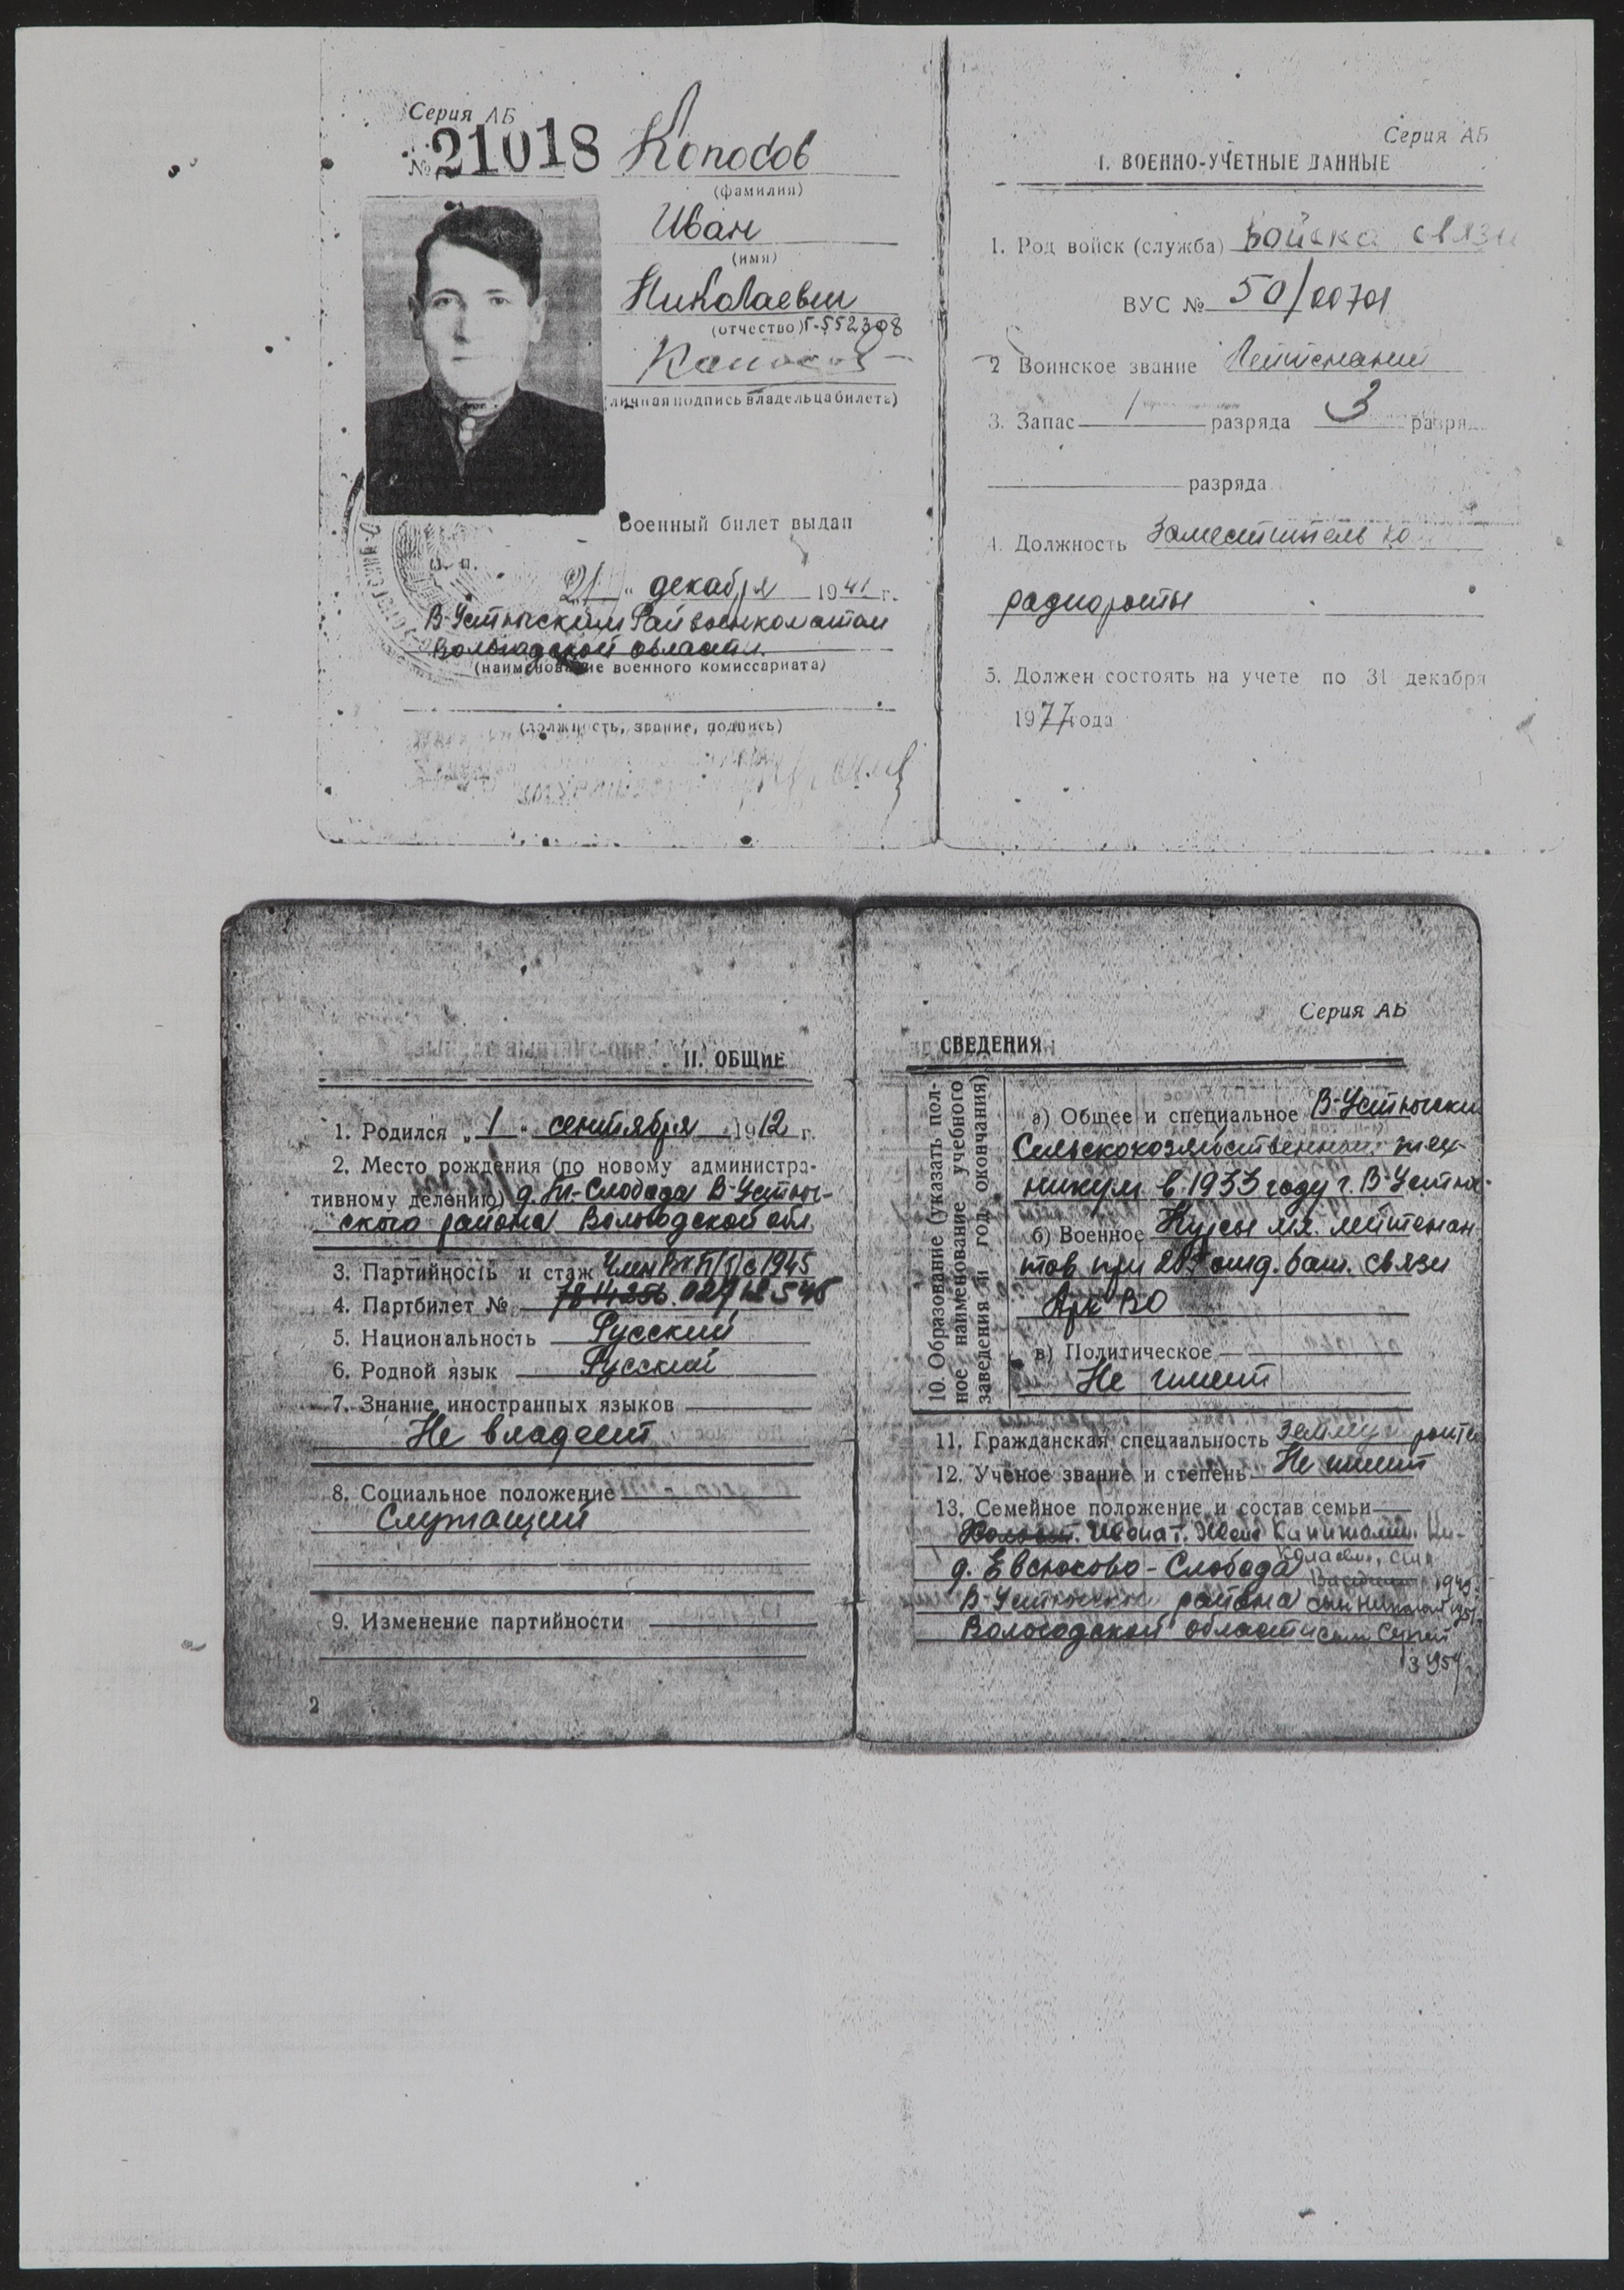 Серия АБ
№ 21018 Копосов
(фамилия)
Иван
(имя)
Николаевич
(отчество) Г-552308
Копосов
(личная подпись владельца билета)
Военный билет выдан
м. п.
декабря 19 г.
В-Устюгским Райвоенкоматом
Вологодской области
(наименование военного комиссариата)
(должность, звание, подпись)
Серия АБ
I. ВОЕННО-УЧЕТНЫЕ ДАННЫЕ
1. Род войск (служба) Войска связи
ВУС № 50/00701
2 Воинское звание Лейтенант
3. Запас 1 разряда 3 разря
разряда
4. Должность Заместитель ко
радиороты
5. Должен состоять на учете по 31 декабря
1977 года
II. ОБЩИЕ
1. Родился „1" сентября 1912 г.
2. Место рождения (по новому администра-
тивному делению) д. -Слобода В-Устюг-
ского района Вологодской обл.
3. Партийность и стаж Член с 1945
4. Партбилет №
5. Национальность Русский
6. Родной язык Русский
7. Знание иностранных языков
Не владеет
8. Социальное положение
Служащий
9. Изменение партийности
2
Серия АБ
СВЕДЕНИЯ
10. Образование (указать пол-
ное наименование учебного
заведения и год окончания)
а) Общее и специальное В-Устюгски
Сельскохозяйственный тех-
никум в 1933 году г. В-Устюг
б) Военное Курсы мл. лейтенан
тов при отд. бат. связи
Арх ВО
в) Политическое
Не имеет
11. Гражданская специальность
12. Ученое звание и степень Не имеет
13. Семейное положение и состав семьи
д. Евсюково-Слобода
В-Устюгского района сын Николай
Вологодской области сын Сергей